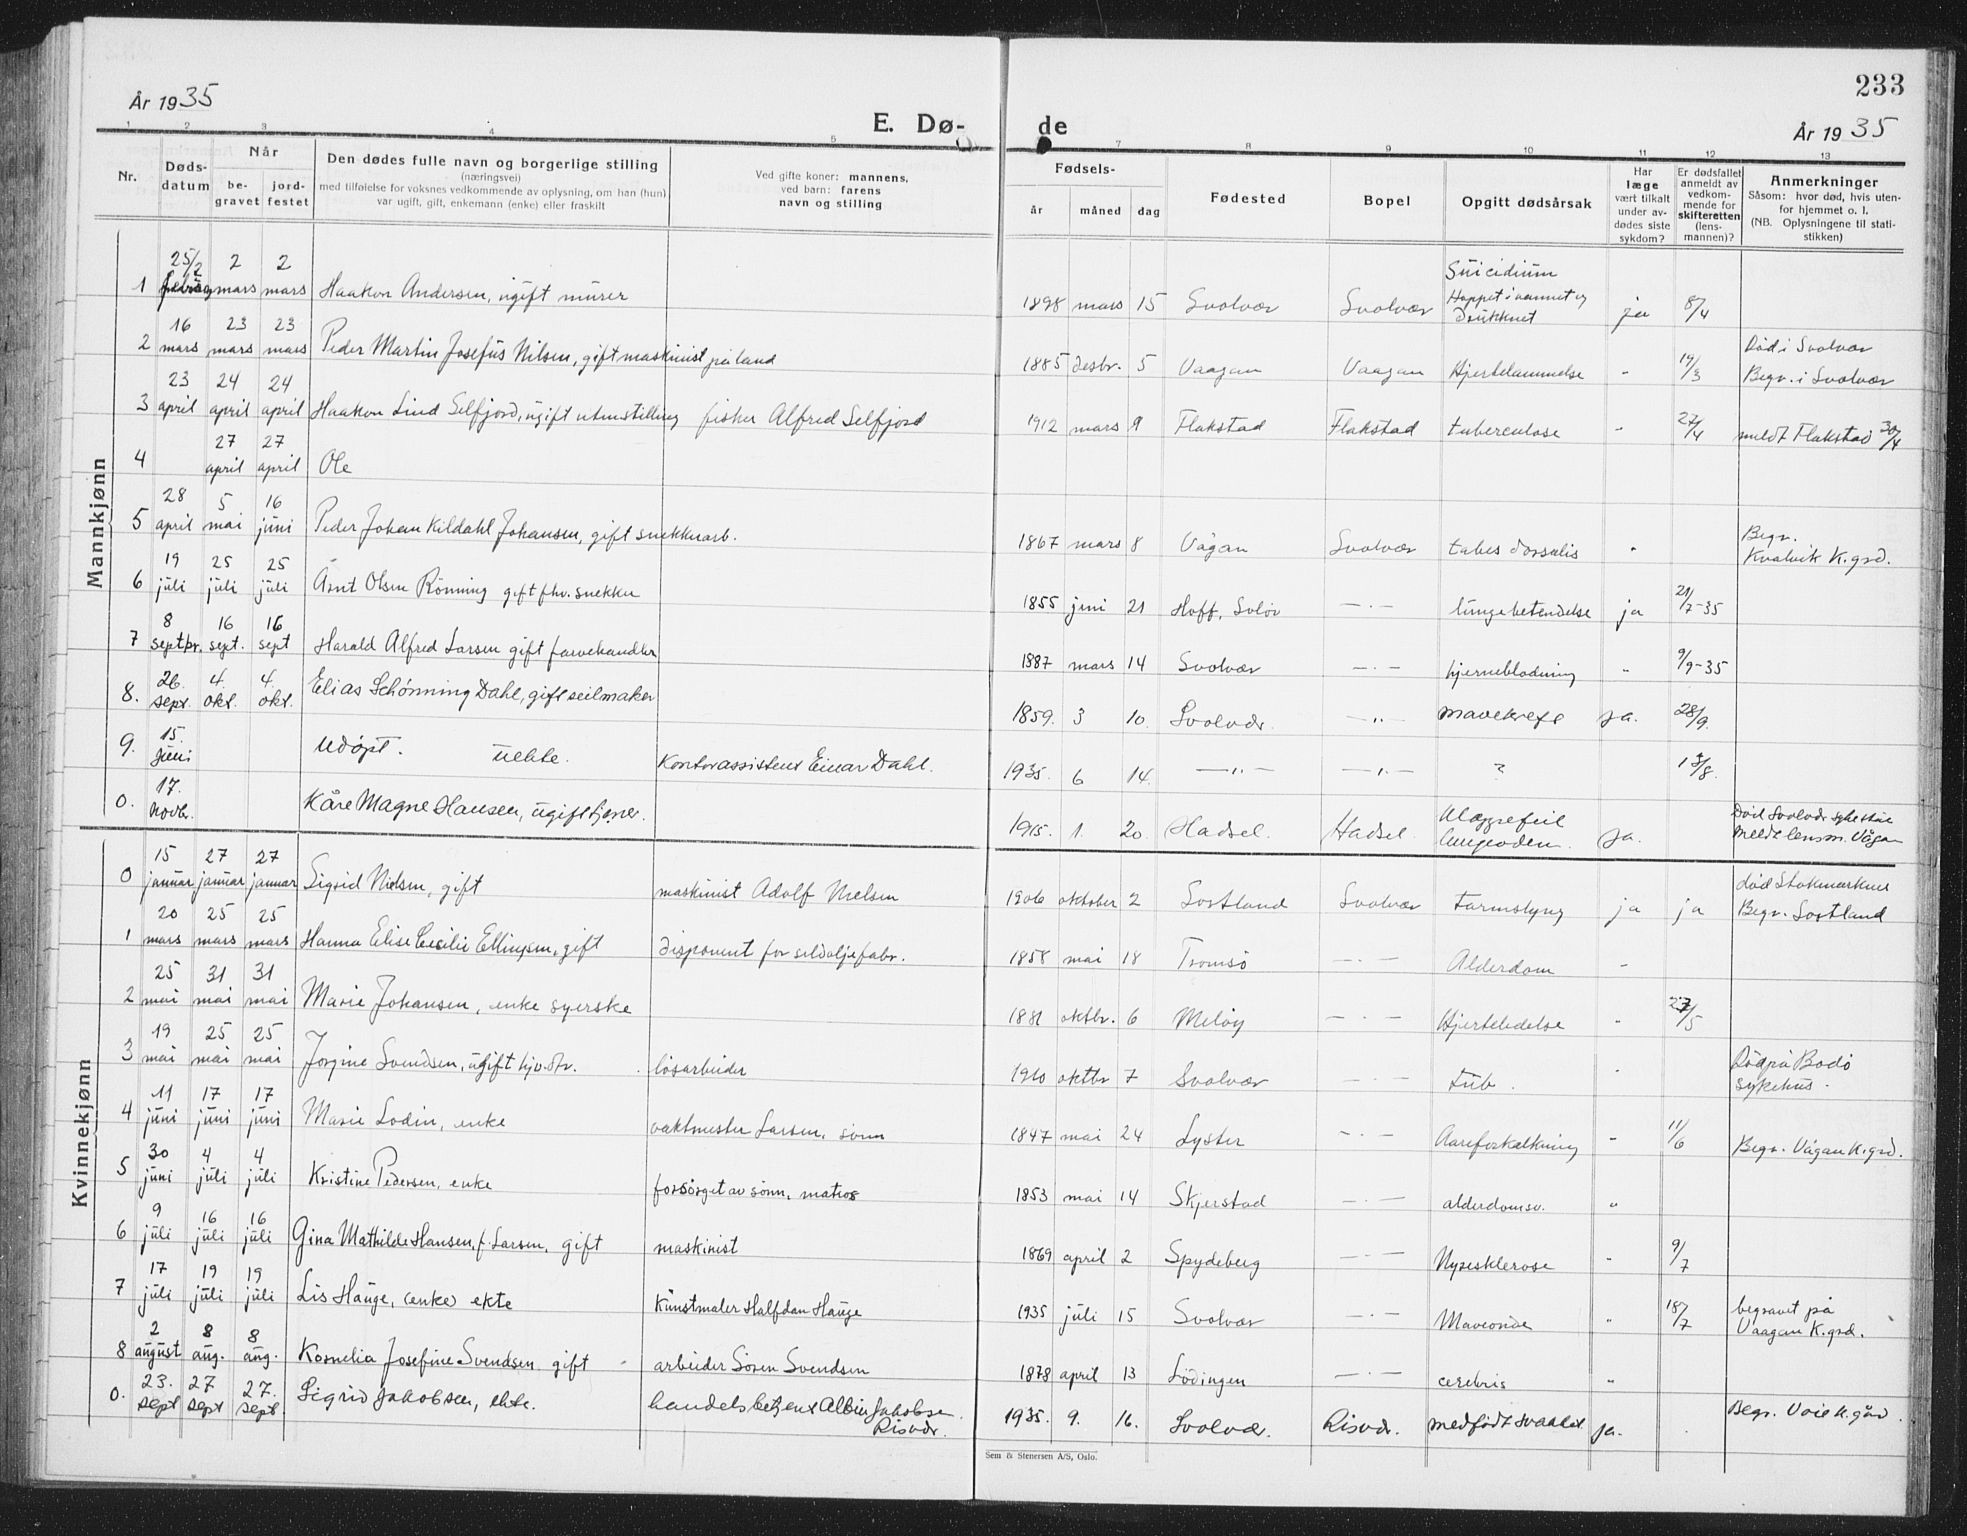 233
År 1935
E. Dø-
de
År 1935
1 2 3 4 5 7 8 9 10 11 12 13
Nr.
Døds-
datum
Når
be-
gravet
jord-
festet
Den dødes fulle navn og borgerlige stilling
(næringsvei)
med tilføielse for voksnes vedkommende av oplysning, om han (hun)
var ugift, gift, enkemann (enke) eller fraskilt
Ved gifte koner: mannens,
ved barn: farens
navn og stilling
Fødsels-
år måned dag
Fødested
Bopel
Opgitt dødsårsak
Har
læge
vært tilkalt
under av-
dødes siste
sykdom?
Er dødsfallet
anmeldt av
vedkom-
mende for
skifteretten
(lens-
mannen)?
Anmerkninger
Såsom: hvor død, hvis uten-
for hjemmet o. l.
(NB. Oplysningene til stati-
stikken)
Mannkjønn
1 25/2 2 mars 2 mars Haakon Andersen, ugift murer 1898 mars 15 Svolvær Svolvær Suicidium
Hoppet i vannet og
Druknet ja 8/4
2 16 mars 23 mars 23 mars Peder Martin Josefus Nilsen, gift maskinist på land 1885 desbr. 5 Vaagan Vaagan Hjertelammelse " 19/3 Død i Svolvær
Begr. i Svolvær
3 23 april 24 april 24 april Haakon Lind Selfjord, ugift uten stilling fisker Alfred Selfjord 1912 mars 9 Flakstad Flakstad tuberculose " 27/4 meldt Flakstad 30/4
4 27 april 27 april Ole
5 28 april 5 mai 16 juni Peder Johan Kildahl Johansen, gift snekkerarb. 1867 mars 8 Vågan Svolvær tabes dorsalis " Begr.
Kvalvik K.grd.
6 19 juli 25 juli 25 juli Arnt Olsen Rönning gift fhv. snekker 1855 juni 21 Hoff, Solör — . — lungebetendelse ja 21/7-35
7 8 septbr. 16 sept. 16 sept Harald Alfred Larsen gift farvehandler 1887 mars 14 Svolvær — . — hjerneblødning " 9/9-35
8. 26. sept. 4. okt. 4. okt. Elias Schönning Dahl, gift seilmaker 1859. 3 10. Svolvær. — " — mavekreft ja. 28/9.
9. 15. juni Udöpt. uekte. Kontorassistent Einar Dahl. 1935. 6 14. — " — — " — ? 13/8.
0. 17. novbr. Kåre Magne Hansen, ugift tjener. 1915. 1. 20. Hadsel. Hadsel. Klaffefeil
lungeödem. ja. Död Svolvær sykestue
meldt lensm. Vågan
Kvinnekjønn
0 15 januar 27 januar 27 januar Sigrid Nielsen, gift maskinist Adolf Nielsen 1906 oktober 2 Sortland Svolvær Tarmslyng ja ja död Stokmarknes
Begr. Sortland
1 20 mars 25 mars 25 mars Hanna Elise Cecilie Ellingsen, gift disponent for sildoljefabr. 1858 mai 18 Tromsö — . — Alderdom "
2 25 mai 31 mai 31 mai Marie Johansen, enke syerske 1881 oktbr. 6 Melöy — . — Hjertelidelse " 27/5
3 19 mai 25 mai 25 mai Jorgine Svendsen, ugift hjv. dtr. lösarbeider 1910 oktbr 7 Svolvær — . — tub. " Död på Bodö
sykehus.
4 11 juni 17 juni 17 juni Marie Lodin, enke vaktmester Larsen, sönn 1847 mai 24 Lyster — . — Aareforkalkning " 11/6 Begr. Vågan K.grd.
5 30 juni 4 juli 4 juli Kristine Pedersen, enke forsörget av sönn, matros 1853 mai 14 Skjerstad — . — alderdomsv. "
6 9 juli 16 juli 16 juli Gina Mathilde Hansen, f. Larsen, gift maskinist 1869 april 2 Spydeberg — . — " 9/7
7 17 juli 19 juli 19 juli Lis Hauge, (enke) ekte Kunstmaler Halfdan Hauge 1935 juli 15 Svolvær — . — " 18/7 begravet på
Vaagan K.grd.
8 2 august 8 aug. 8 aug. Kornelia Josefine Svendsen gift arbeider Sören Svendsen 1878 april 13 Lödingen — . — cerebris "
0. 23. sept 27 sept 27. sept. Sigrid Jakobsen, ekte. handelsbetjent Albin Jakobsen.
Risvær. 1935. 9. 16. Svolvær. Risvær. medfödt svakhet ja. Begr. K.gård.
Sem & Stenersen A/S, Oslo.